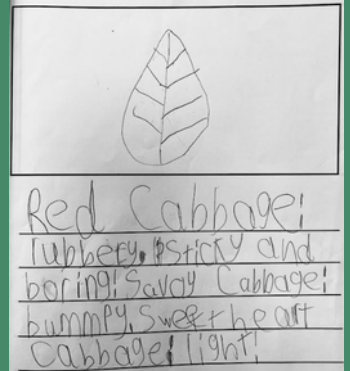 Red Cabbage!
rubbery, sticky and
boring! Savoy Cabbage!
bummpy. Sweet heart
Cabbage! light!